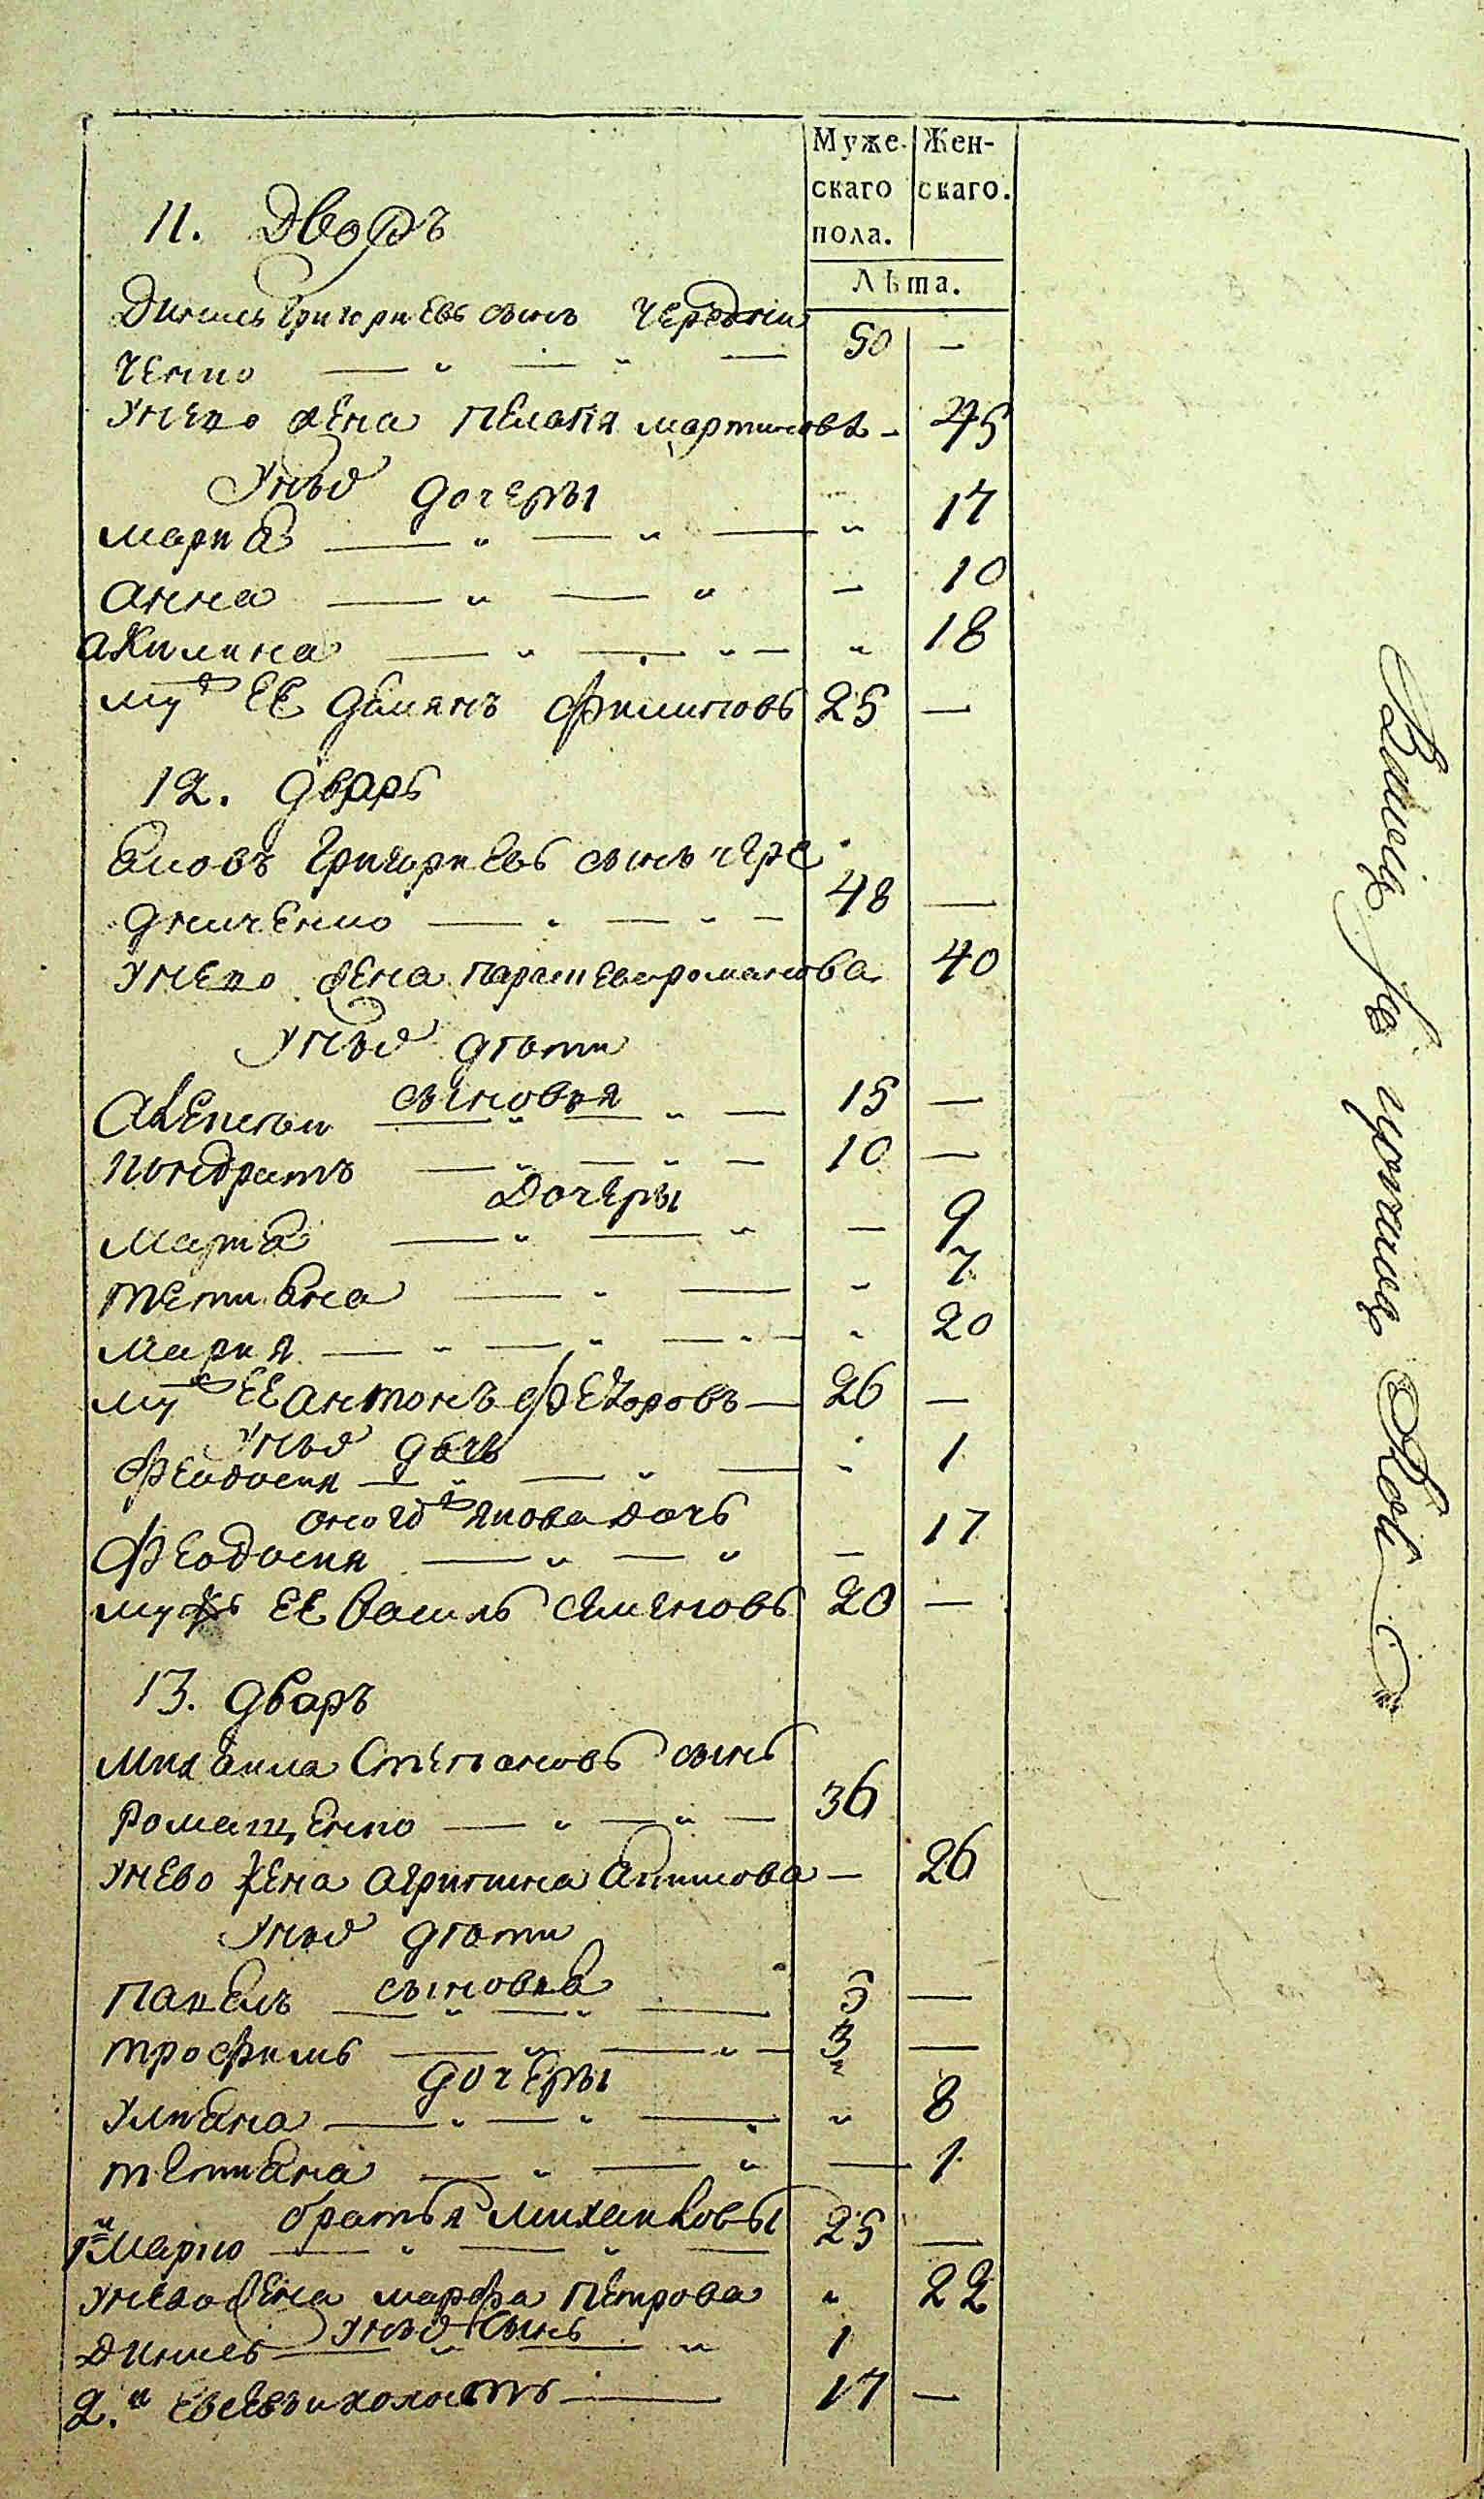 Муже- Жен-
скаго скаго.
пола.
Лѣта.
11. Дворъ
Динисъ Григориевъ сынъ Чередни
ченко 50 —
Унево жена Пелагия Мартинова — 45
Унихъ дочеры
Мариа " 17
Анна — 10
Акилина " 18
Мужъ ее Дамянъ Филиповъ 25 —
12. Дворъ
Яковъ Григориевъ сынъ Чере
дниченко 48 —
Унево жена Параскева Романова 40
Унихъ дѣти
сыновья
Алексѣй 15 —
Кондратъ 10 —
Дочеры
Марта — 9
Тетиана " 7
Мария " 20
Мужъ ее Антонъ Федоровъ — 26 —
Унихъ дочь
Феодосия " 1
оногожъ Якова дочь
Феодосия — 17
Мужъ ее Василь Семеновъ 20 —
13. Дворъ
Михаила Степановъ сынъ
Ромащенко 36
Унево жена Агрипина Акимова — 26
Унихъ дѣти
сыновья
Павелъ 5 —
Трофимъ 3 —
дочеры
Улиана " 8
Тетиана — 1
братья Михайловы
1й Марко 25 —
Унево жена Марфа Петрова " 22
Унихъ сынъ
Динисъ 1
2.й Евсевъи холостъ 17 —